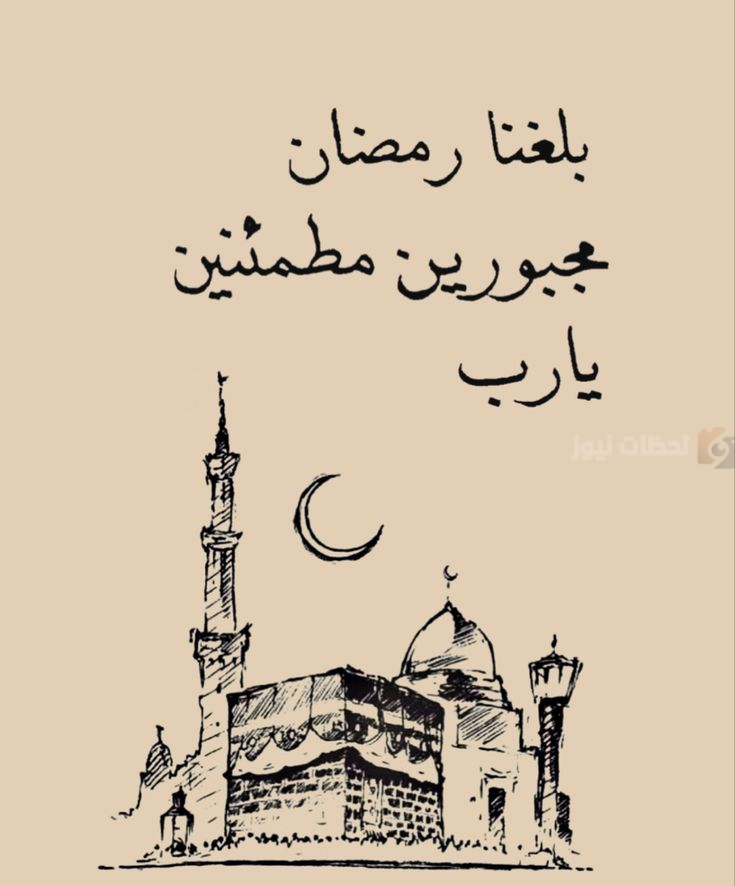 بلغنا رمضان
مجبورين مطمئنين
يارب
لحظات نيوز